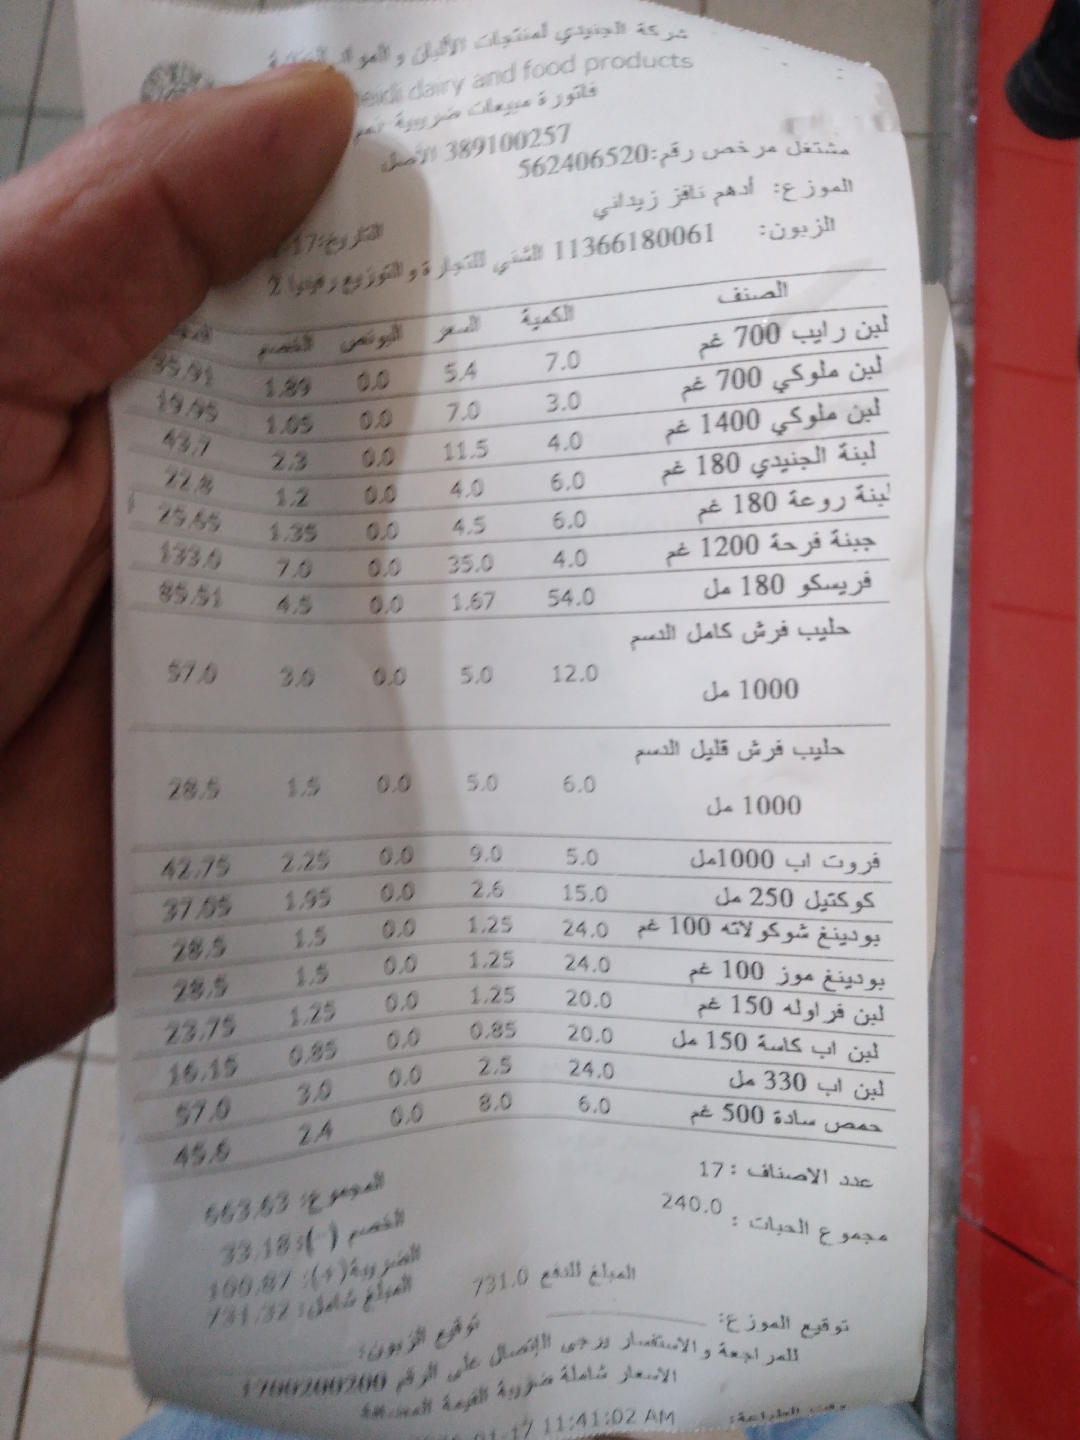 شركة الجنيدي لمنتجات الألبان و المواد الغذائية
dairy and food products
فاتورة مبيعات ضريبية
389100257 الأصل
مشتغل مرخص رقم:562406520
الموزع: أدهم نافز زيداني
التاريخ:
الزبون: 11366180061 الشني للتجارة و التوزيع رفيديا 2
الصنف الكمية السعر البونص الخصم
لبن رايب 700 غم 7.0 5.4 0.0 1.89 35.91
لبن ملوكي 700 غم 3.0 7.0 0.0 1.05 19.95
لبن ملوكي 1400 غم 4.0 11.5 0.0 2.3 43.7
لبنة الجنيدي 180 غم 6.0 4.0 0.0 1.2 22.8
لبنة روعة 180 غم 6.0 4.5 0.0 1.35 25.65
جبنة فرحة 1200 غم 4.0 35.0 0.0 7.0 133.0
فريسكو 180 مل 54.0 1.67 0.0 4.5 85.51
حليب فرش كامل الدسم
1000 مل 12.0 5.0 0.0 3.0 57.0
حليب فرش قليل الدسم
1000 مل 6.0 5.0 0.0 1.5 28.5
فروت اب 1000مل 5.0 9.0 0.0 2.25 42.75
كوكتيل 250 مل 15.0 2.6 0.0 1.95 37.05
بودينغ شوكولاته 100 غم 24.0 1.25 0.0 1.5 28.5
بودينغ موز 100 غم 24.0 1.25 0.0 1.5 28.5
لبن فراوله 150 غم 20.0 1.25 0.0 1.25 23.75
لبن اب كاسة 150 مل 20.0 0.85 0.0 0.85 16.15
لبن اب 330 مل 24.0 2.5 0.0 3.0 57.0
حمص سادة 500 غم 6.0 8.0 0.0 2.4 45.6
عدد الاصناف :17
المجموع: 663.63
مجموع الحبات : 240.0
الخصم (-): 33.18
الضريبة(+): 100.87
المبلغ شامل: 731.32
المبلغ للدفع 731.0
توقيع الموزع:
توقيع الزبون:
للمراجعة و الاستفسار يرجى الإتصال على الرقم 1700200200
الاسعار شاملة ضريبة القيمة المضافة
وقت الطباعة: 01-17 11:41:02 AM